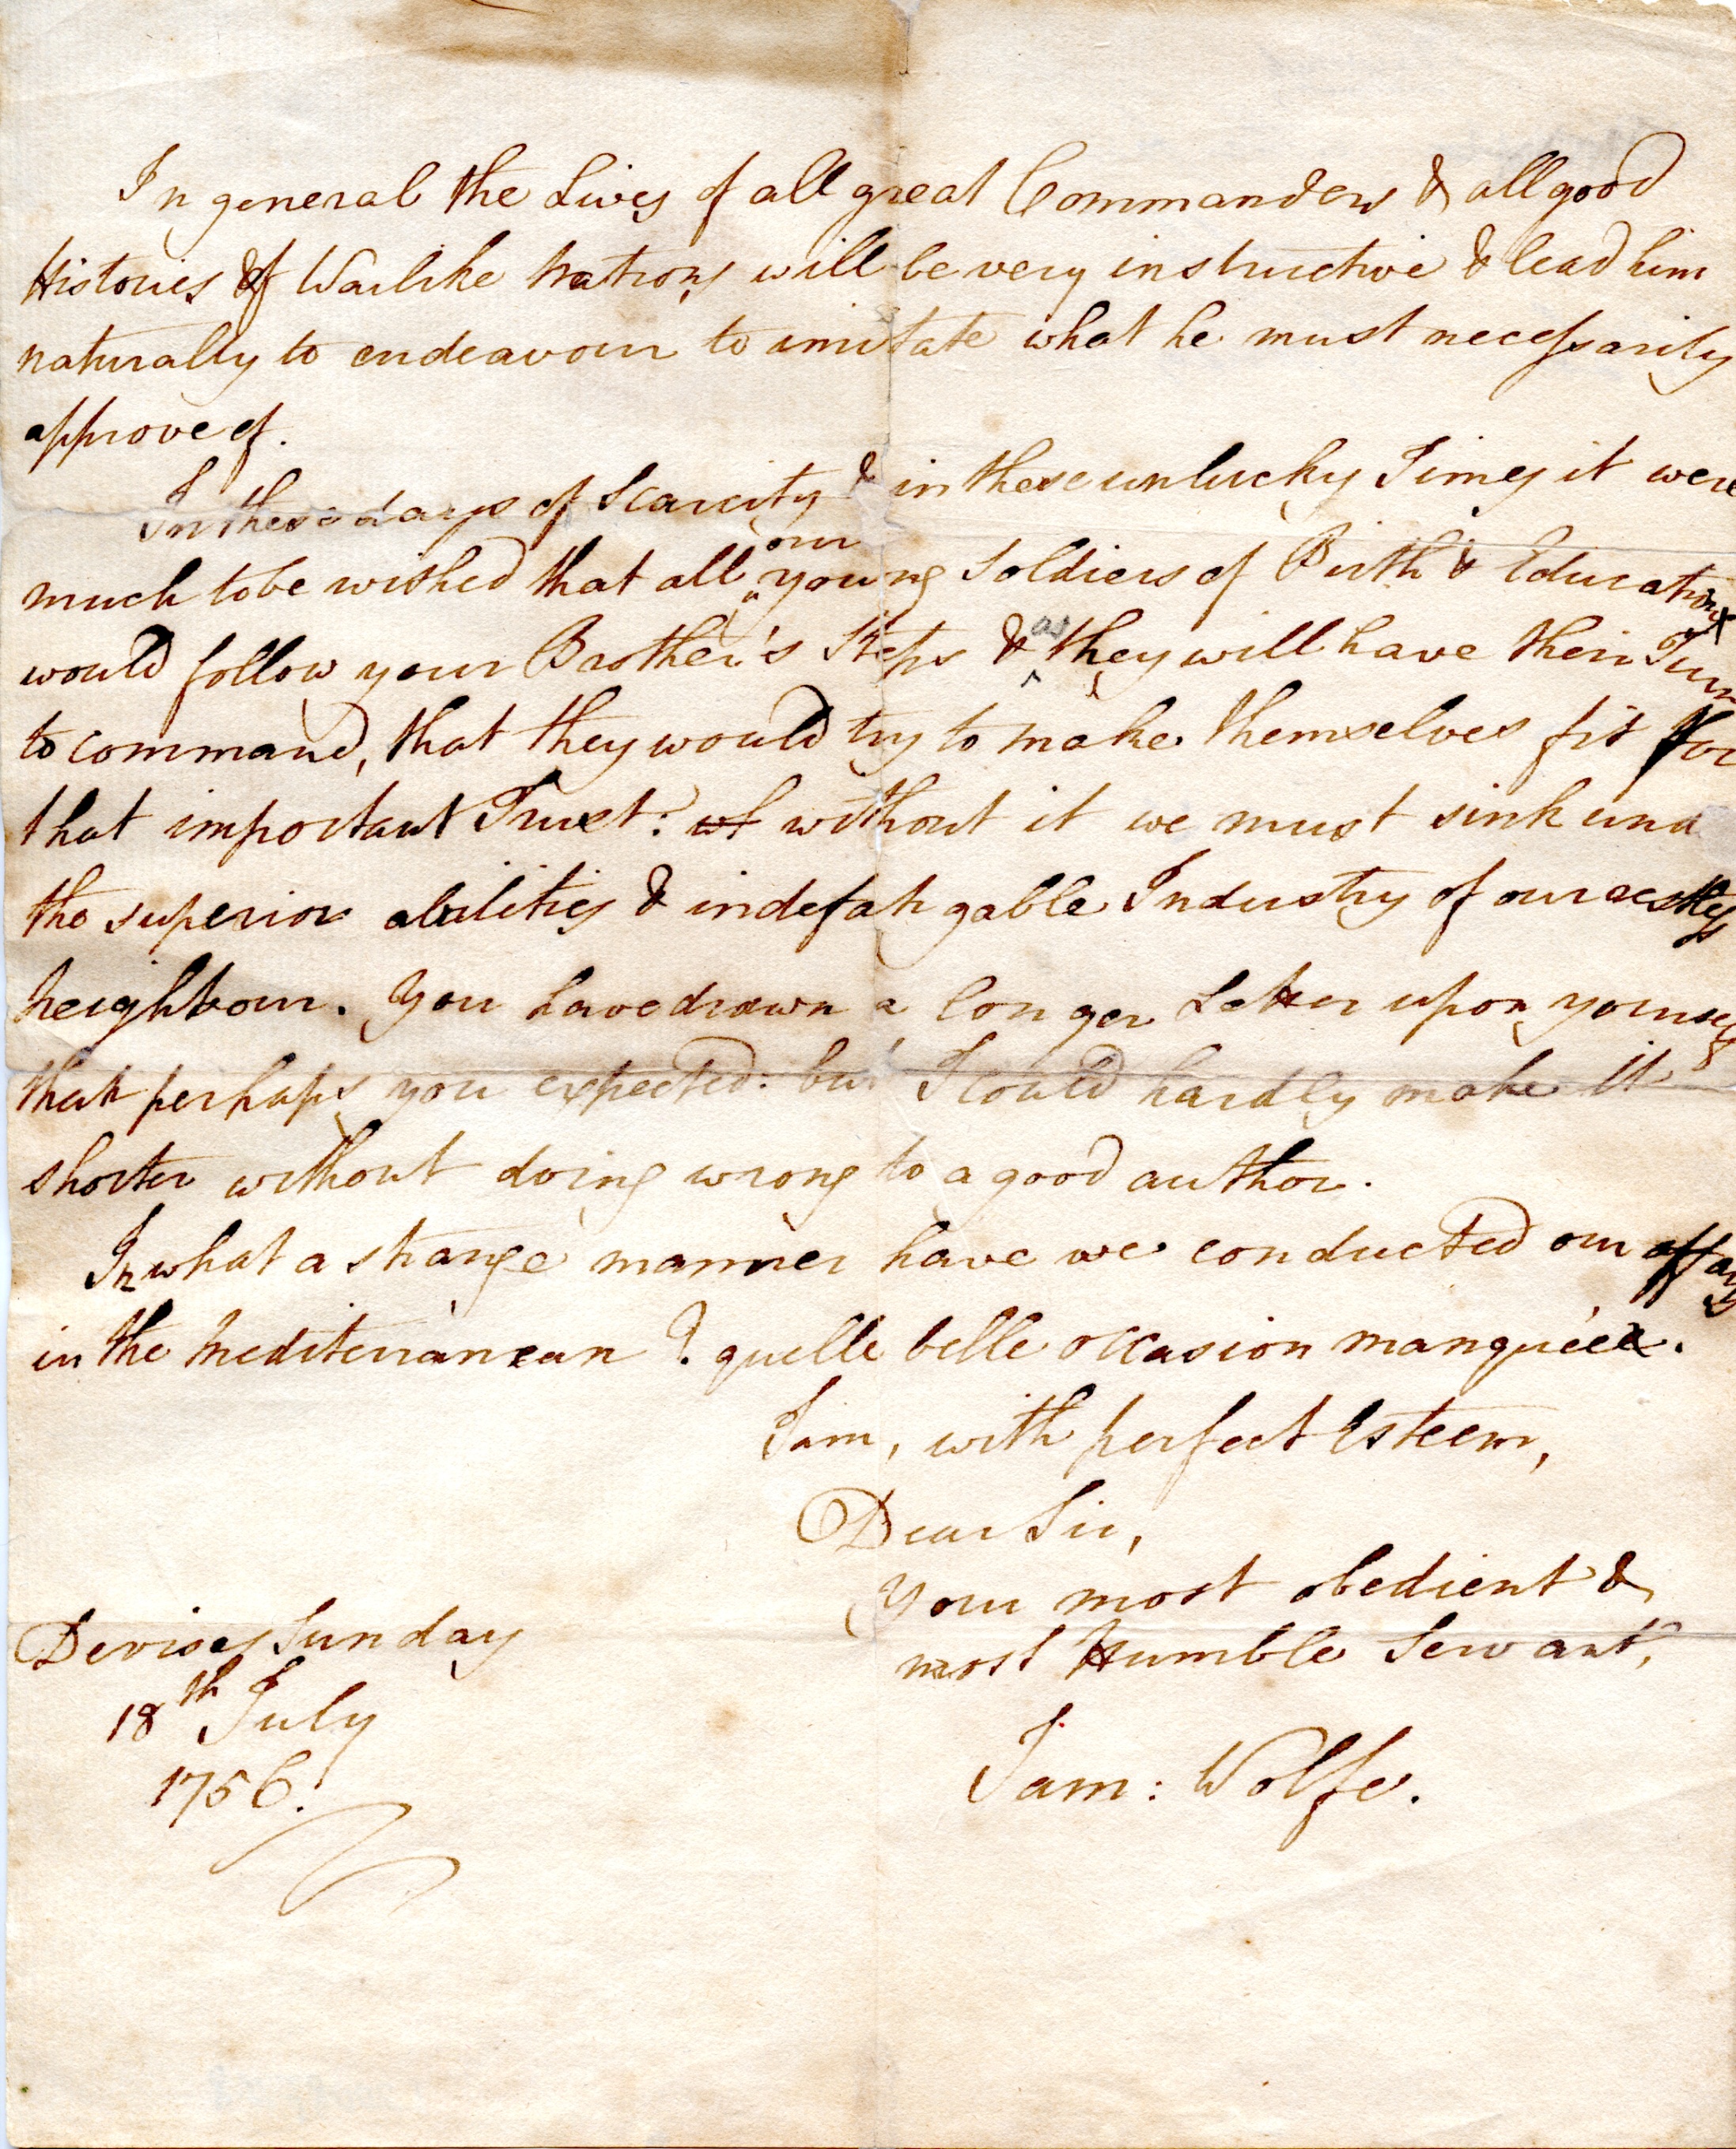 In general the Lives of all great Commanders & all good
Histories of Warlike Nations will be very instructive & lead him
naturally to endeavour to imitate what he must necessarily
approve of.
In these days of Scarcity & in these unlucky Times it were
much to be wished that all our young Soldiers of Birth & Education
would follow your Brother's Steps & as they will have their Turn
to command, that they would try to make themselves fit for
that important Trust: without it we must sink und
the superior abilities & indefatigable Industry of our restless
neighbour. You have drawn a longer Letter upon yourself
than perhaps you expected: but I could hardly make it
shorter without doing wrong to a good author.
In what a strange manner have we conducted our affairs
in the Mediterranean? quelle belle occasion manquée.
I am, with perfect Esteem,
Dear Sir,
Your most obedient &
most Humble Servant,
Jam: Wolfe.
Devises Sunday
18th July
1756.